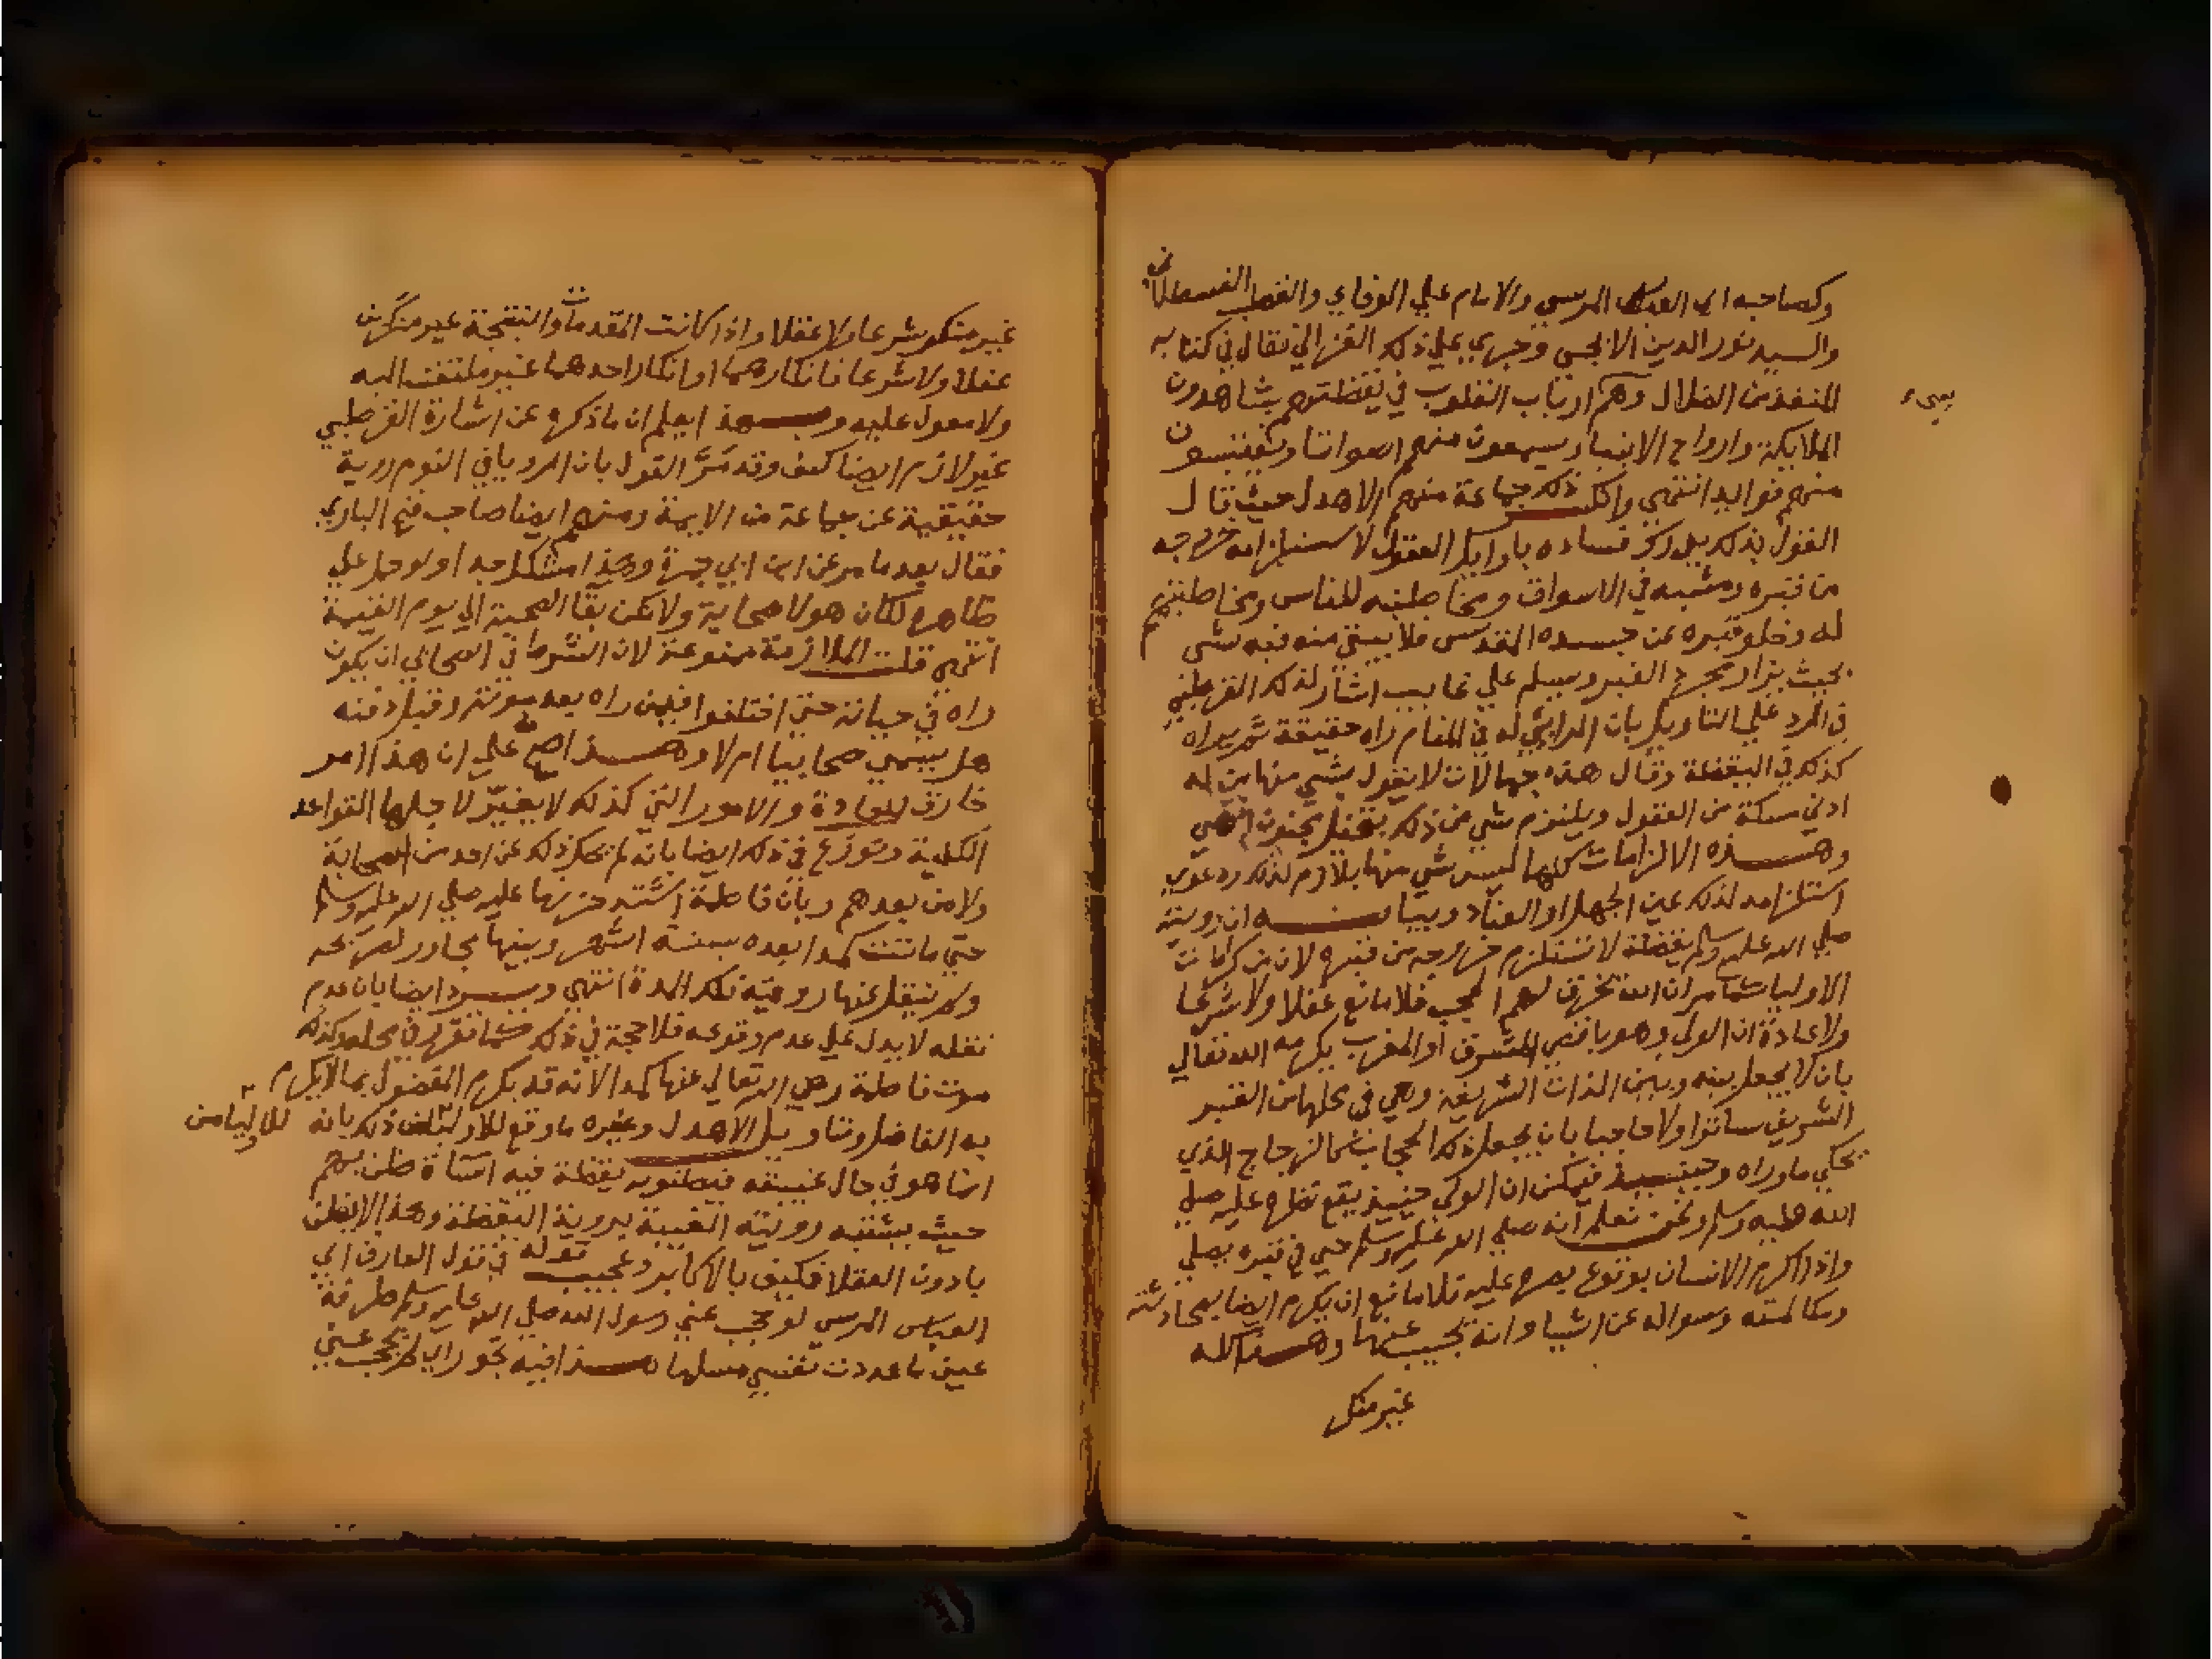 وكصاحبه ابي العباس المرسي والامام علي الوفاي والقطب القسطلاني
والسيد نور الدين الايجي وجري علي ذلك الغزالي فقال في كتابه
المنقذ من الضلال وهم ارباب القلوب في يقظتهم يشاهدون
الملايكة وارواح الانبيا ويسمعون منهم اصواتا ويقتبسون
منهم فوايد انتهي وانكر ذلك جماعة منهم الاهدل حيث قال
القول بذلك يدرك فساده باوايل العقول لاستلزامه خروجه
من قبره ومشيه في الاسواق ومخاطبته للناس ومخاطبتهم
له وخلو قبره عن جسده المقدس فلا يبقي منه فيه شي
بحيث يزار مجرد القبر ويسلم علي غايب اشار لذلك القرطبي
في الرد علي القايل بان الرايي له في المنام راه حقيقة ثم يراه
كذلك في اليقظة وقال هذه جهالات لا يقول بشي منها من له
ادني مسكة من العقول وملتزم شي من ذلك مختل مجنون انتهي
وهذه الالزامات كلها ليس شي منها بلازم لذلك ودعوي
استلزامه لذلك عين الجهل او العناد وبيانه ان رويته
صلي الله عليه وسلم يقظة لا تستلزم خروجه من قبره لان من كرامات
الاوليا كما مر ان الله يخرق لهم الحجب فلا مانع عقلا ولا شرعا
ولا عادة ان الولي وهو باقصي المشرق او المغرب يكرمه الله تعالي
بان لا يجعل بينه وبين الذات الشريفة وهي في محلها من القبر
الشريف ساترا ولا حاجبا بان يجعل ذلك الحجاب كالزجاج الذي
يحكي ماوراه وحينيذ فيمكن ان الولي حينيذ يقع نظره عليه صلي
الله عليه وسلم ونحن نعلم انه صلي الله عليه وسلم حي في قبره يصلي
واذا اكرم الانسان بوقوع بصره عليه فلا مانع ان يكرم ايضا بمحادثته
ومكالمته وسواله عن اشيا وانه يجيب عنها وهذا كله
غير منكر
غير منكر شرعا ولا عقلا واذا كانت المقدمات والنتيجة غير منكرين
عقلا ولا شرعا فانكارهما او انكار احدهما غير ملتفت اليه
ولا معول عليه وبهذا يعلم ان ما ذكره عن اشارة القرطبي
غير لازم ايضا كيف وقد مر القول بان الرويا في النوم روية
حقيقية عن جماعة من الايمة ومنهم ايضا صاحب فتح الباري
فقال بعد ما مر عن ابن ابي جمرة وهذا مشكل جدا ولو حمل علي
ظاهره لكان هولا صحابة ولامكن بقا الصحبة الي يوم القيمة
انتهي قلت الملازمة ممنوعة لان الشرط في الصحابي ان يكون
راه في حياته حتي اختلفوا فيمن راه بعد موته وقبل دفنه
هل يسمي صحابيا ام لا وهذا صح علي ان هذا امر
خارق للعادة والامور التي كذلك لا يغير لاجلها القواعد
الكلية ونوزع في ذلك ايضا بانه لم يحك ذلك عن احد من الصحابة
ولا من بعدهم وبان فاطمة اشتد حزنها عليه صلي الله عليه وسلم
حتي ماتت كمدا بعده بستة اشهر وبيتها مجاور لضريحه
ولم ينقل عنها رويته تلك المدة انتهي ويرد ايضا بان عدم
نقله لا يدل علي عدم وقوعه فلا حجة في ذلك كما تقرر في محله وكذلك
موت فاطمة رضي الله تعالي عنها كمدا لانه قد يكرم المفضول بما لا يكرم
به الفاضل وتاويل الاهدل وغيره ما وقع للاوليا من ذلك بانه
انما هو في حال غيبته فيظنونه يقظة فيه اساة ظن بهم
حيث يشتبه روية الغيبة بروية اليقظة وهذا لا يظن
بادون العقلا فكيف بالاكابر وعجيب قوله في قول العارف ابي
العباس المرسي لو حجب عني رسول الله صلي الله عليه وسلم طرفة
عين ما عددت نفسي مسلما هذا فيه تجوز اي لم يحجب عني